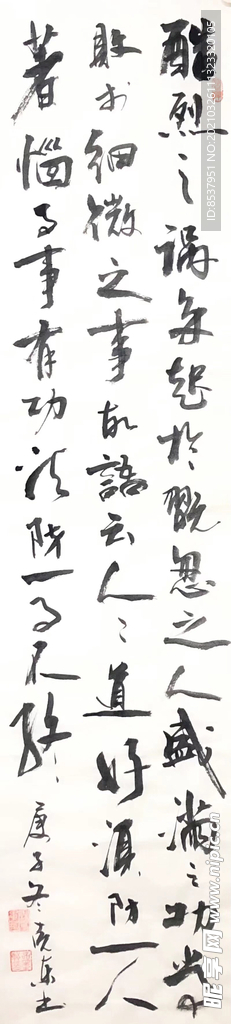 酷烈之祸多起于玩忽之人盛满之功常
败于细微之事故语云人人道好须防一人
著恼事事有功须防一事不终
庚子冬
ID:8537951 NO:20210326111323320105
昵图网
www.nipic.cn